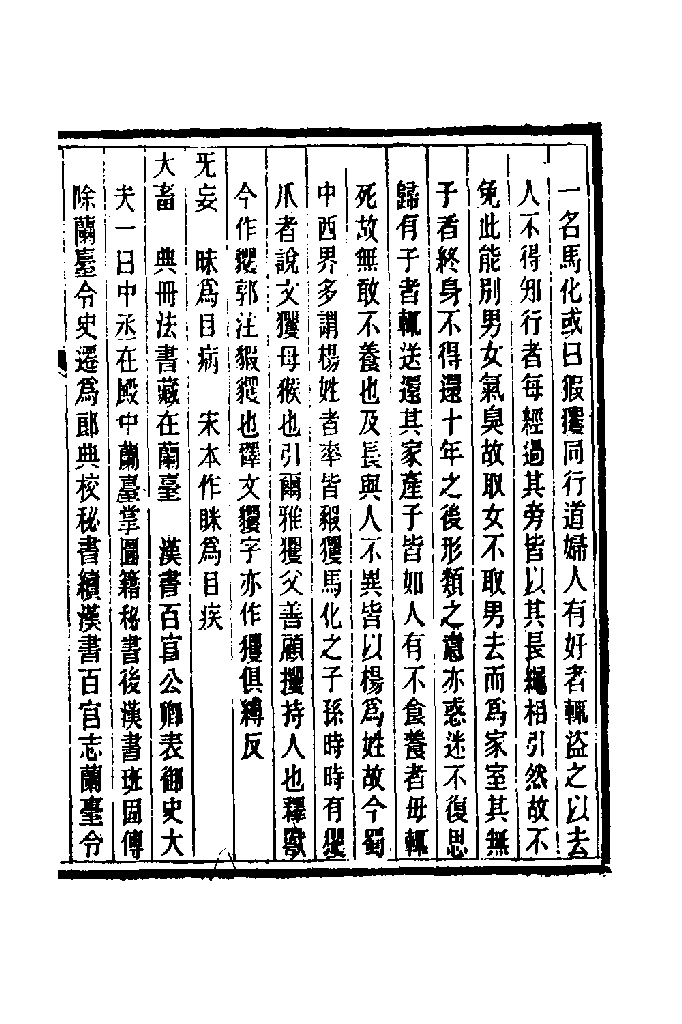 一名馬化或曰猳玃同行道婦人有好者輒盜之以去
人不得知行者每經過其旁皆以其長繩相引然故不
免此能別男女氣臭故取女不取男去而爲家室其無
子者終身不得還十年之後形類之意亦惑迷不復思
歸有子者輒送還其家產子皆如人有不食養者母輒
死故無敢不養也及長與人不異皆以楊爲姓故今蜀
中西界多謂楊姓者率皆猳玃馬化之子孫時時有玃
爪者說文玃母猴也引爾雅玃父善顧攫持人也釋獸
今作貜郭注貑貜也釋文玃字亦作玃俱縛反
旡妄　昧爲目病　宋本作眯爲目疾
大畜　典冊法書藏在蘭臺　漢書百官公卿表御史大
夫一曰中丞在殿中蘭臺掌圖籍秘書後漢書班固傳
除蘭臺令史遷爲郎典校秘書續漢書百官志蘭臺令